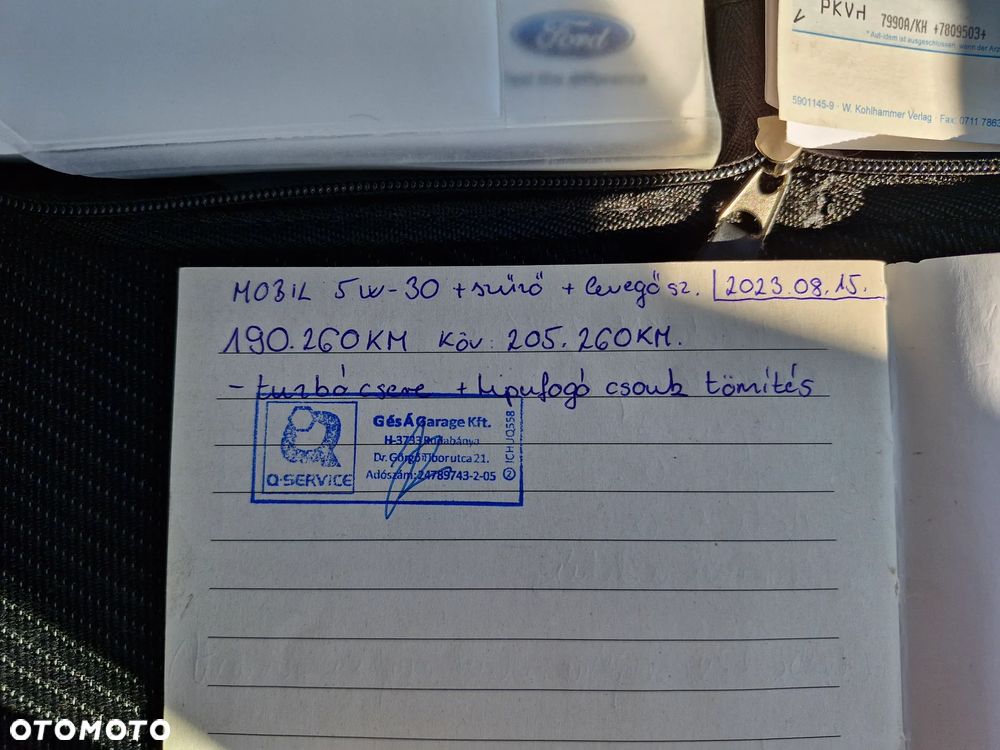 Ford
Feel the difference
PKVH 7990A/KH +7809503+
*Aut-idem ist ausgeschlossen, wenn der Arz
5901145-9 · W. Kohlhammer Verlag · Fax: 0711 7863
MOBIL 5W-30 + szűrő + levegő sz. 2023.08.15.
190.260KM Köv: 205.260KM.
- turbó csere + kipufogó csonk tömítés
G és Á Garage Kft.
H-3733 Rudabánya
Dr. Görgő Tibor utca 21.
Adószám: 24789743-2-05 2
Q-SERVICE
ICHJQ558
OTOMOTO